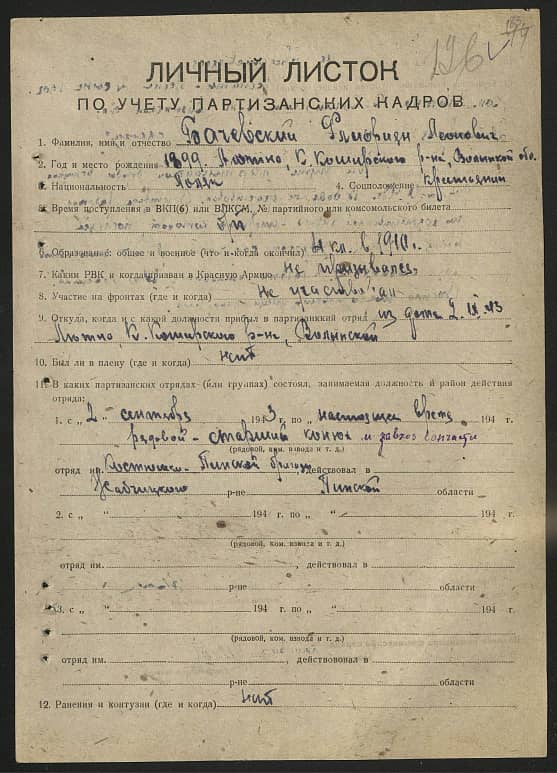 ЛИЧНЫЙ ЛИСТОК
ПО УЧЕТУ ПАРТИЗАНСКИХ КАДРОВ
1. Фамилия, имя и отчество Бачевский Леонович
2. Год и место рождения 1899 Лютино, К. Коширского р-на, Волынской обл.
3. Национальность Поляк 4. Соцположение крестьянин
5. Время поступления в ВКП(б) или ВЛКСМ, № партийного или комсомольского билета
б/п
6. Образование: общее и военное (что и когда окончил) 4 кл. в 1910 г.
7. Каким РВК и когда призван в Красную Армию не призывался
8. Участие на фронтах (где и когда) Не участвовал
9. Откуда, когда и с какой должности прибыл в партизанккий отряд из дома 2.IX.43
Лютино, К. Коширского р-на, Волынской
10. Был ли в плену (где и когда) нет
11. В каких партизанских отрядах (бли группах) состоял, занимаемая должность й район действия
отряда:
1. с „ 2 " сентября 1943 г. по „ настоящее время 194 г.
рядовой - старший конюх и завхоз санчасти
(рядовой, ком. взвода и т. д.)
отряд им. Костюшко - Пинской бригады действовал в
Жабчицкого р-не Пинской области
2. с „ " 194 г. по „ " 194 г.
(рядовой, ком. взвода и т. д.)
отряд им. , действовал в
р-не области
3. с „ " 194 г. по „ " 194 г.
(рядовой, ком. взвода и т. д.)
отряд им. , действовал в
р-не области
12. Ранения и контузии (где и когда) нет